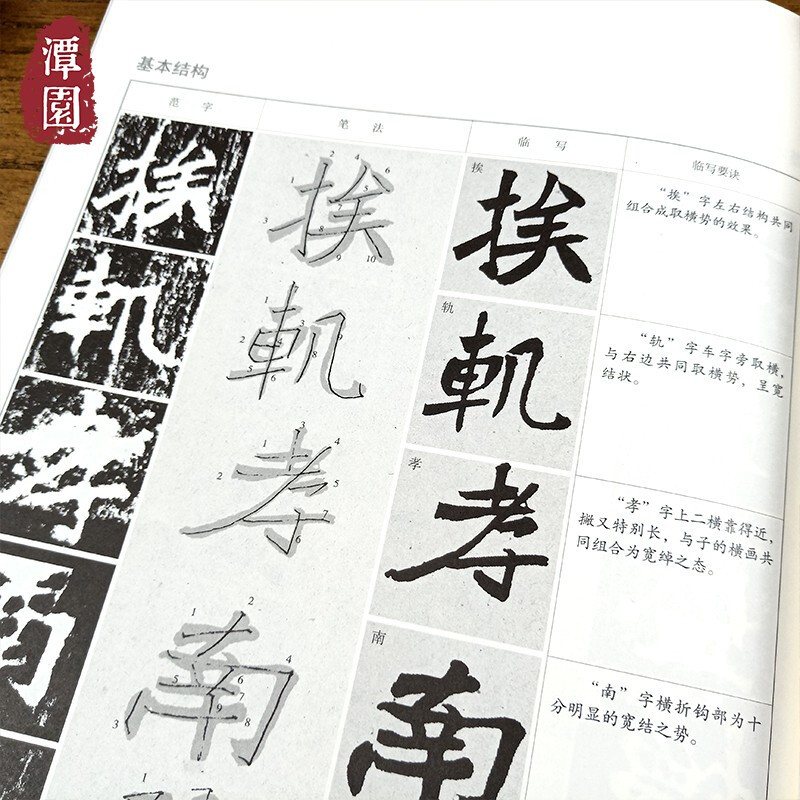 潭園
基本结构
范字 笔法 临写 临写要诀
挨
挨
挨
挨
“挨”字左右结构共同
组合成取横势的效果。
軌
軌
轨
軌
“轨”字车字旁取横，
与右边共同取横势，呈宽
结状。
孝
孝
孝
孝
“孝”字上二横靠得近，
撇又特别长，与子的横画共
同组合为宽绰之态。
南
南
南
南
“南”字横折钩部为十
分明显的宽结之势。